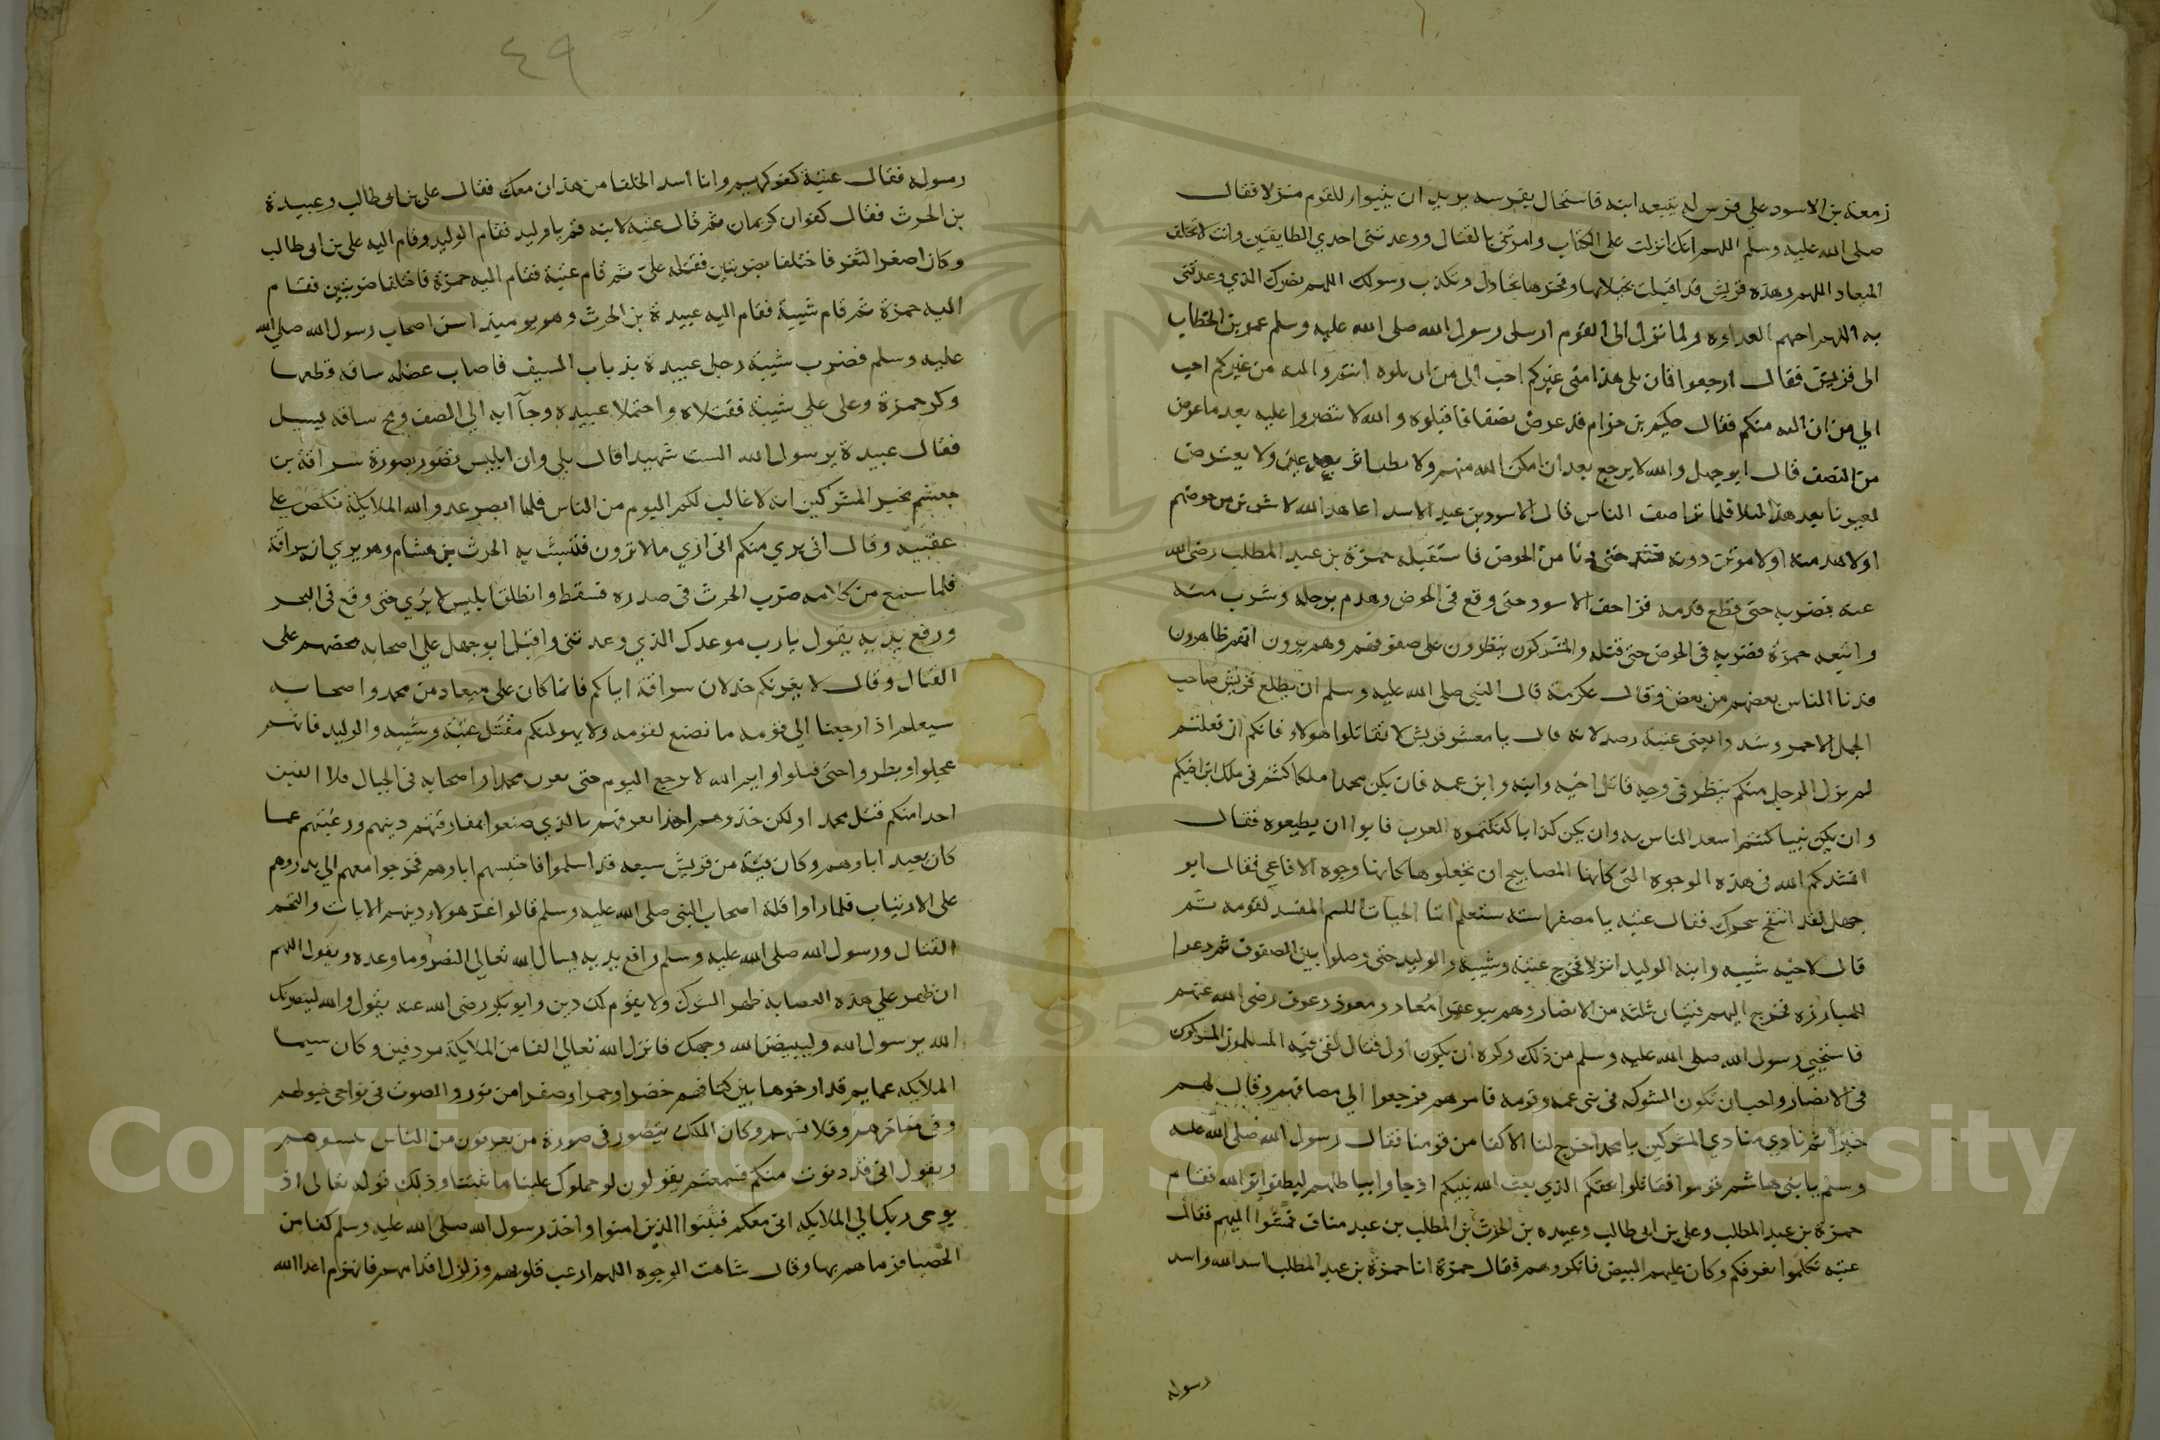 زمعة بن الاسود علي فرس له يتبعه ابنه فاستجال بفرسه يريد ان يتبوا للقوم منزلا فقال
صلي الله عليه وسلم اللهم انك انزلت علي الكتاب وامرتني بالقتال ووعدتني احدي الطايفتين وانت لا تخلف
الميعاد اللهم وهذه قريش قد اقبلت بخيلايها وفخرها تجادل وتكذب رسولك اللهم نصرك الذي وعدتني
به اللهم احنهم الغداة ولما نزل الي القوم ارسل رسول الله صلى الله عليه وسلم عمر بن الخطاب
الى قريش فقال ارجعوا فان يلي هذا مني غيركم احب الي من ان تلوه انتم والله من غيركم احب
الي من ان اليه منكم فقال حكيم بن حزام قد عرض نصفا فاقبلوه والله لا تنصروا عليه بعد ما عرض
من النصف قال ابو جهل والله لا نرجع بعد ان امكن الله منهم ولا نطلب اثر بعد عين ولا يعترض
لعيرنا بعد هذا ابدا فلما تراصف الناس قال الاسود بن عبد الاسد اعاهد الله لاشربن من حوضهم
او لاهدمنه او لاموتن دونه فشد حتى دنا من الحوض فاستقبله حمزة بن عبد المطلب رضي الله
عنه فضربه حتى قطع قدمه فزاحف الاسود حتى وقع في الحوض وهدم برجله وشرب منه
واتبعه حمزة فضربه في الحوض حتى قتله والمشركون ينظرون على صفوفهم وهم يرون انهم ظاهرون
فدنا الناس بعضهم من بعض وقال عكرمة قال النبي صلي الله عليه وسلم ان يطلع قريش صاحب
الجمل الاحمر رشد واتى عتبة رصد لانه قال يا معشر قريش لا تقاتلوا هولاء فانكم ان فعلتم
لم يزل الرجل منكم ينظر في وجه قاتل اخيه وابنه وابن عمه فان يكن محمدا ملكا كنتم في ملك ابن اخيكم
وان يكن نبيا كنتم اسعد الناس به وان يكن كذابا كفتكموه العرب فابوا ان يطيعوه فقال
انشدكم الله في هذه الوجوه التي كانها المصابيح ان تجعلوها كانها وجوه الافاعي فقال ابو
جهل لقد انتفخ سحرك فقال عتبه يا مصفر استه ستعلم اينا الجبان اللئيم المفسد لقومه ثم
قال لاخيه شيبه وابنه الوليد انزلا فخرج عتبة وشيبة والوليد حتى وصلوا بين الصفوف ثم دعوا
للمبارزه فخرج اليهم فتيان ثلثه من الانصار وهم بنو عفرا معاد ومعوذ وعوف رضي الله عنهم
فاستحيي رسول الله صلى الله عليه وسلم من ذلك وكره ان يكون اول قتال لقي فيه المسلمون المشركون
في الانصار واحب ان تكون الشوكه في بني عمه وقومه فامرهم فرجعوا الي مصافهم وقال لهم
خيرا ثم نادي منادي المشركين يا محمد اخرج لنا الاكفا من قومنا فقال رسول الله صلي الله عليه
وسلم يا بني هاشم قوموا فقاتلوا بحقكم الذي بعث الله نبيكم اذ جاوا بباطلهم ليطفوا نور الله فقام
حمزة بن عبد المطلب وعلي بن ابي طالب وعبيده بن الحرث بن المطلب بن عبد مناف فمشوا اليهم فقال
عتبه تكلموا نعرفكم وكان عليهم البيض فانكروهم فقال حمزة انا حمزة بن عبد المطلب اسد الله واسد
رسوله
٤٩
رسوله فقال عتبة كفو كريم وانا اسد الحلفا من هذان معك فقال علي بن ابي طالب وعبيدة
بن الحرث فقال كفوان كريمان ثم قال عتبه لابنه قم يا وليد فقام الوليد وقام اليه علي بن ابي طالب
وكان اصغر النفر فاختلفا بضربتين فقتله علي ثم قام عتبة فقام اليه حمزة فاختلفا ضربتين فقام
اليه حمزة ثم قام شيبة فقام اليه عبيدة بن الحرث وهو يوميذ اسن اصحاب رسول الله صلي الله
عليه وسلم فضرب شيبة رجل عبيدة بذباب السيف فاصاب عضله ساقه قطعها
وكر حمزة وعلي علي شيبة فقتلاه واحتملا عبيده وجآا به الي الصف ومخ ساقه يسيل
فقال عبيدة يرسول الله الست شهيدا قال بلي وان ابليس تصور بصورة سراقة بن
جعشم يخبر المشركين انه لا غالب لكم اليوم من الناس فلما ابصر عدو الله الملايكة نكص علي
عقبيه وقال اني بري منكم اني اري ما لا ترون فتشبث به الحرث بن هشام وهو يري انه سراقة
فلما سمع من كلامه ضرب الحرث في صدره فسقط وانطلق ابليس لا يري حتى وقع في البحر
ورفع يديه يقول يارب موعدك الذي وعدتني واقبل ابو جهل علي اصحابه فحضهم على
القتال وقال لا يغرنكم خذلان سراقة اياكم فانما كان علي ميعاد من محمد واصحابه
سيعلم اذا رجعنا الي قومه ما نصنع لقومه ولا يهولنكم مقتل عتبة وشيبه والوليد فانهم
عجلوا وبطروا حتى قتلوا وايم الله لا نرجع اليوم حتى نقرن محمدا واصحابه في الجبال فلا الفين
احدا منكم قتل محمد او لكن خذوهم اخذا نعرفهم بالذي صنعوا لمفارقتهم دينهم ورغبتهم عما
كان يعبد اباوهم وكان فتية من قريش سبعه قد اسلموا فاحتبسهم اباوهم فخرجوا معهم الي بدر وهم
على الارتياب فلما راوا قلة اصحاب النبي صلى الله عليه وسلم قالوا غر هولاء دينهم الايات والتحم
القتال ورسول الله صلى الله عليه وسلم رافع يديه يسال الله تعالى النصر وما وعده ويقول اللهم
ان ظهر علي هذه العصابة ظهر الشرك ولا يقوم لك دين وابو بكر رضي الله عنه يقول والله لينصرنك
الله يرسول الله وليبيض الله وجهك فانزل الله تعالي الفا من الملايكة مردفين وكان سيما
الملايكه عمايم قد ارخوها بين كتافهم خضرا وحمرا وصفرا من نور والصوف في نواحي خيولهم
وفي مغافرهم وقلانسهم وكان الملك يتصور في صورة من يعرفون من الناس
ويقول اني قد دنوت منكم فسمعتهم يقولون لو حملوك علينا ما ثبتنا وذلك قوله تعالى اذ
يوحي ربك الي الملايكه اني معكم فثبتوا الذين امنوا واخذ رسول الله صلي الله عليه وسلم كفا من
الحصبا فرماهم بها وقال شاهت الوجوه اللهم ارعب قلوبهم وزلزل اقدامهم فانهزم اعدا الله
Copyright © King Saud University
1957